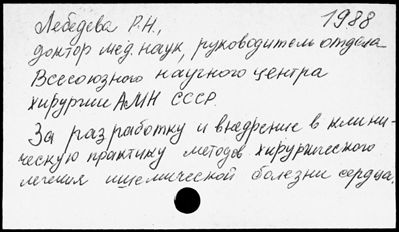 Лебедева Р.Н., 1988
доктор мед. наук, руководитель отдела
Всесоюзного научного центра
хирургии АМН СССР.
За разработку и внедрение в клини-
ческую практику методов хирургического
лечения ишемической болезни сердца.